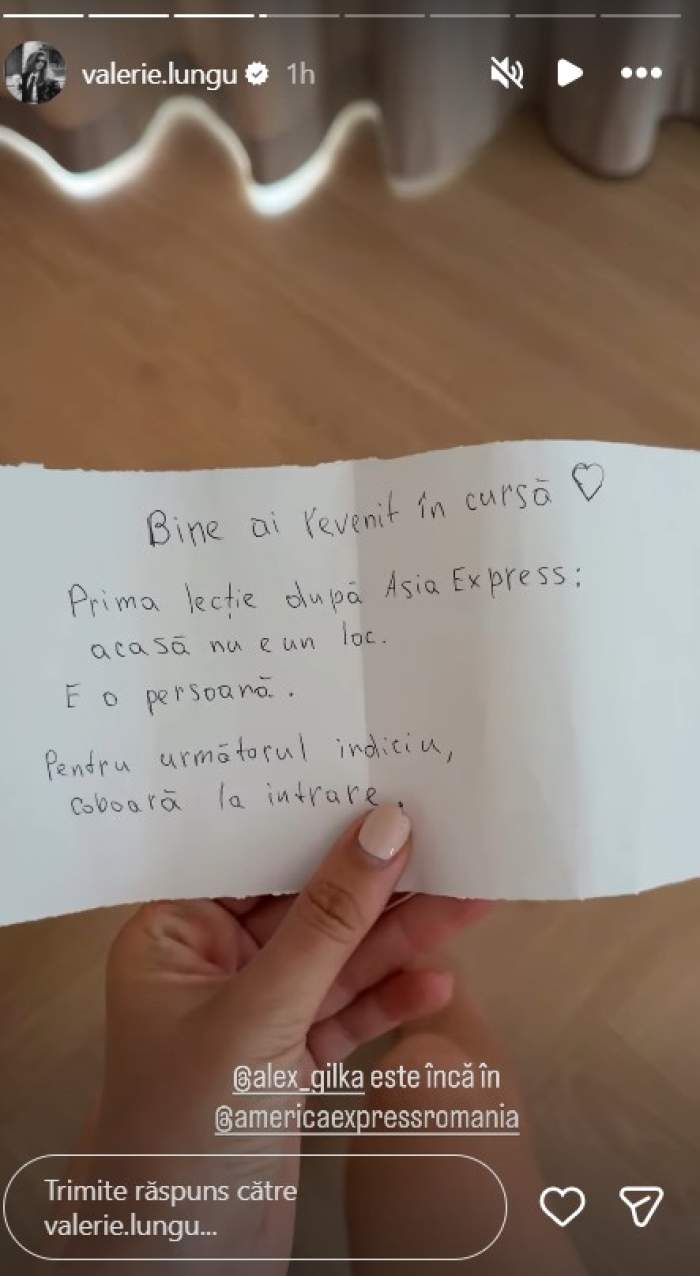 valerie.lungu 1h
Bine ai revenit în cursă ♡
Prima lecție după Asia Express:
acasă nu e un loc.
E o persoană.
Pentru următorul indiciu,
coboară la intrare.
@alex_gilka este încă în
@americaexpressromania
Trimite răspuns către
valerie.lungu...